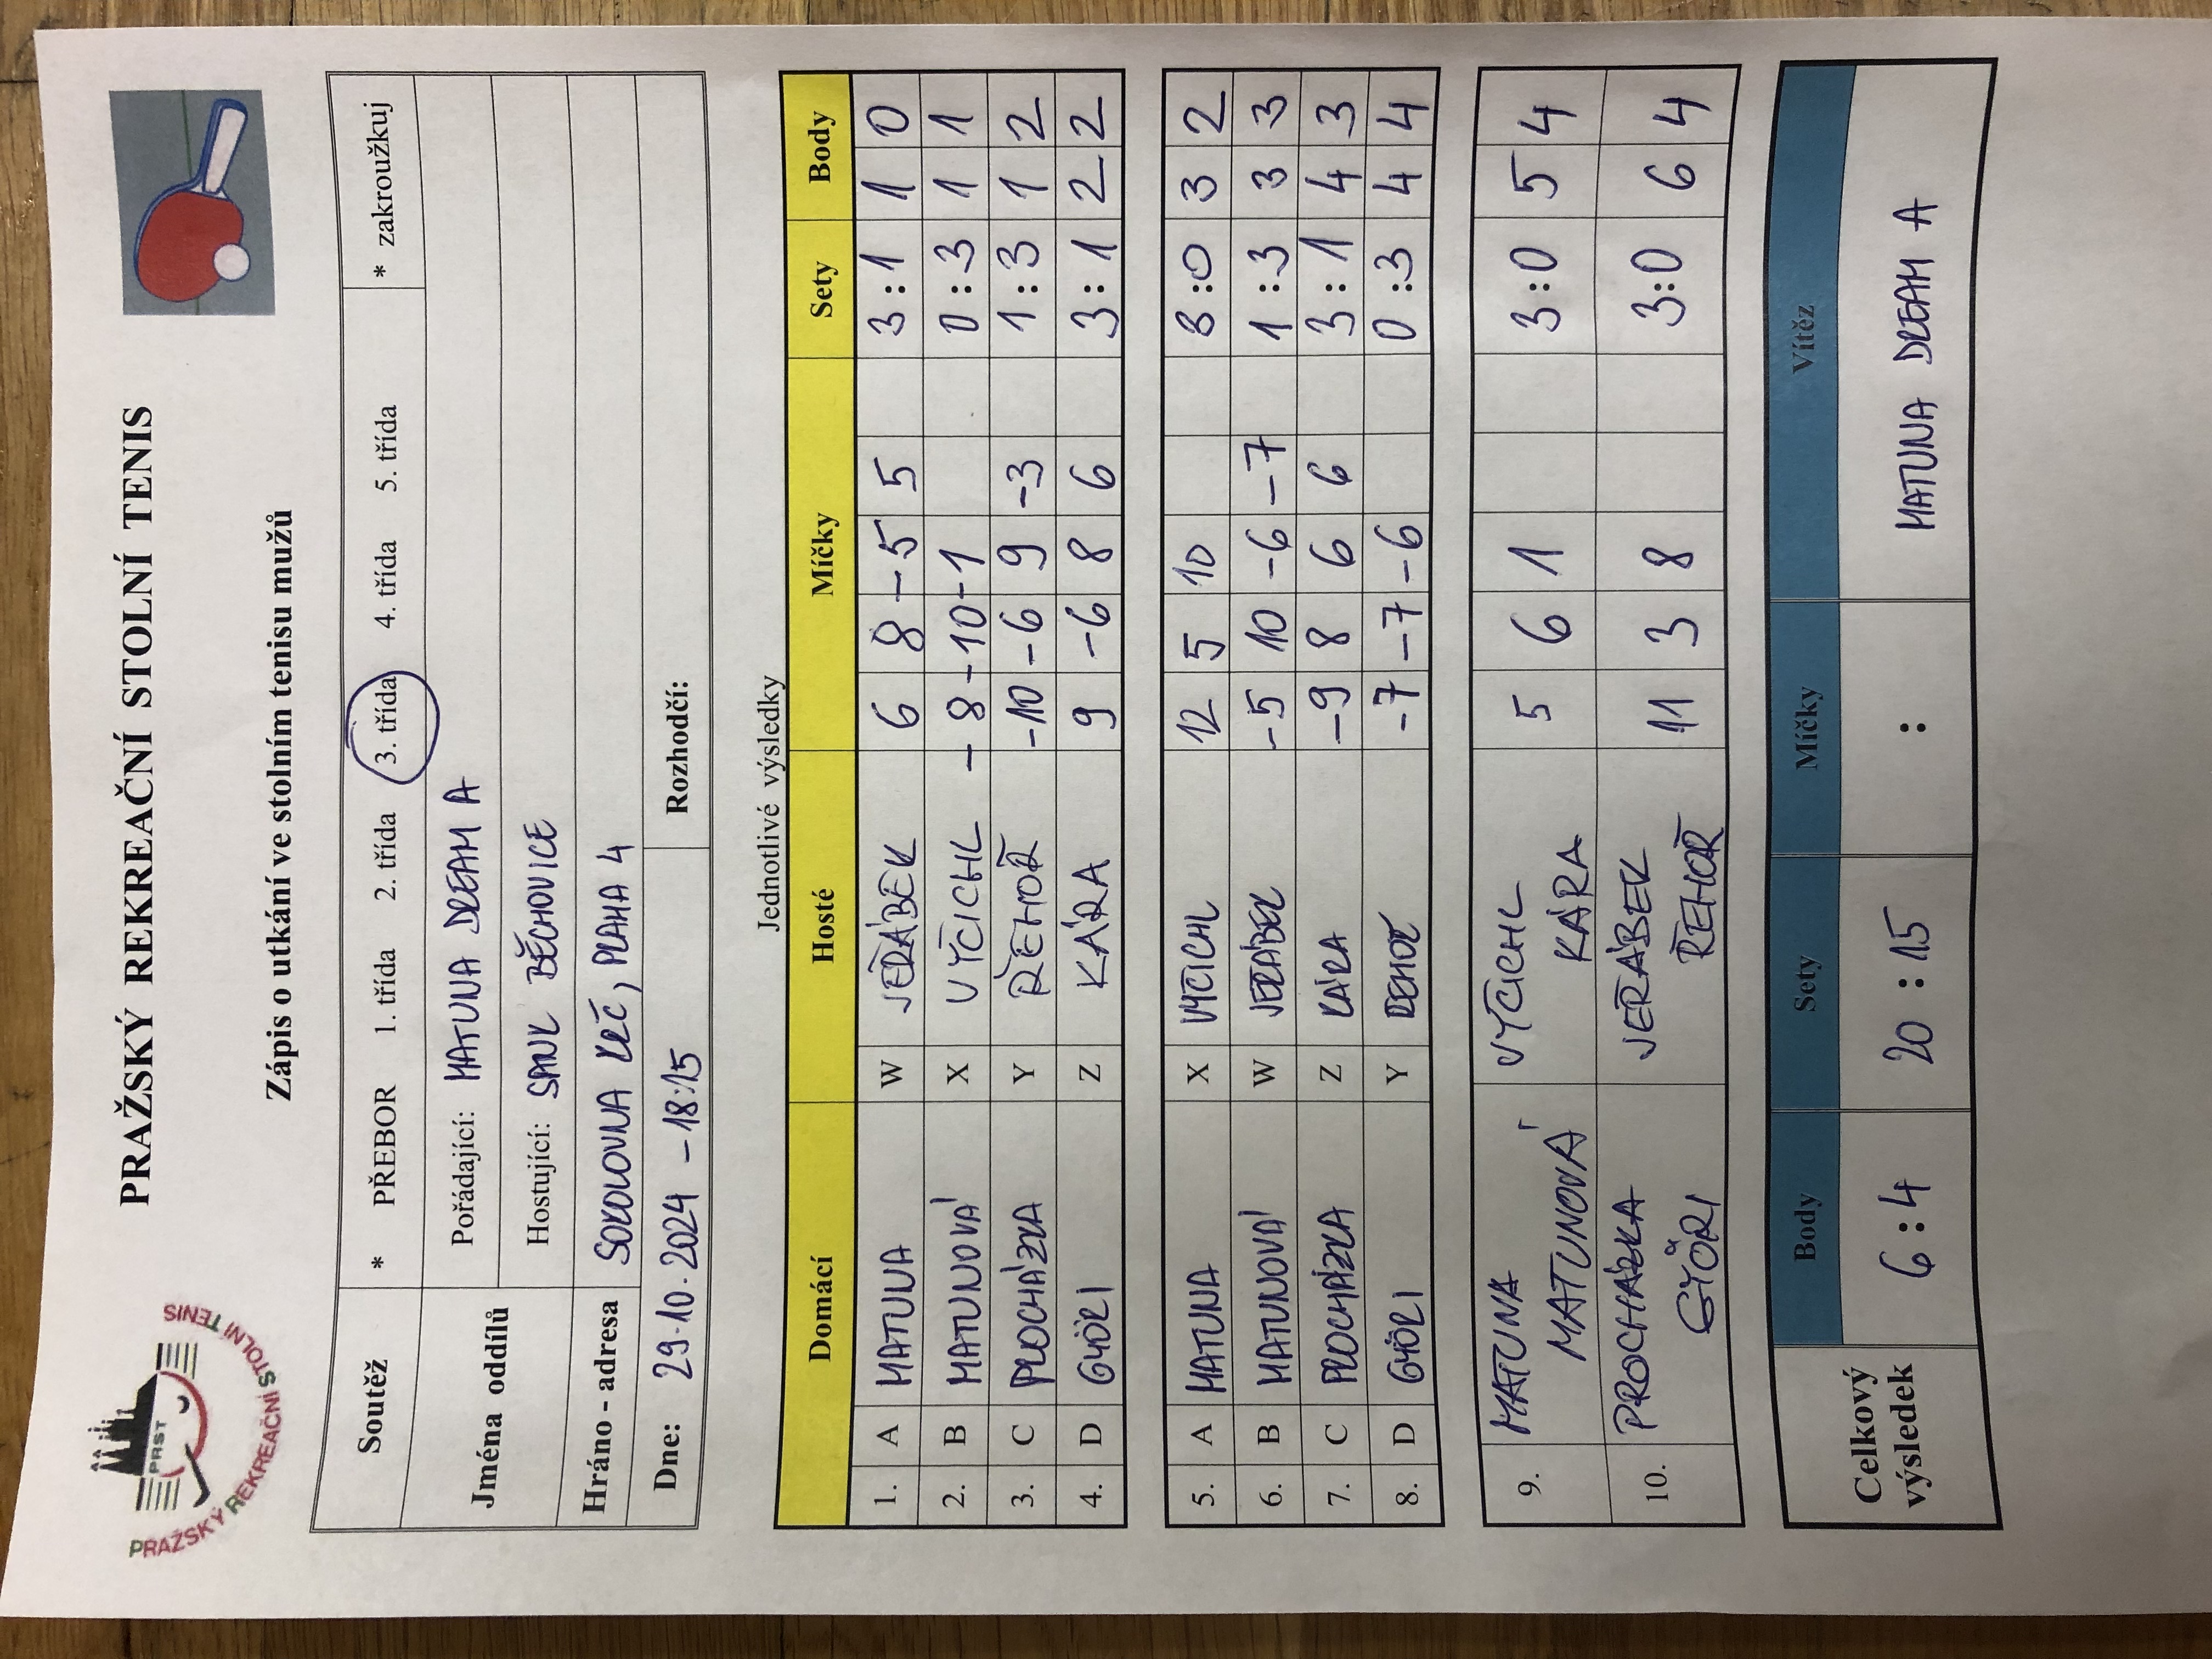 PRAŽSKÝ REKREAČNÍ STOLNÍ TENIS
PRST
PRAŽSKÝ REKREAČNÍ STOLNÍ TENIS
Zápis o utkání ve stolním tenisu mužů
Soutěž * PŘEBOR 1. třída 2. třída 3. třída 4. třída 5. třída * zakroužkuj
Jména oddílů Pořádající: MATUNA DREAM A
Hostující: SPVL BĚCHOVICE
Hráno - adresa SOKOLOVNA KRČ, PRAHA 4
Dne: 29.10.2024 - 18:15 Rozhodčí:
Jednotlivé výsledky
Domácí Hosté Míčky Sety Body
1. A MATUNA W JEŘÁBEK 6 8 -5 5 3:1 1 0
2. B MATUNOVÁ X VYČICHL -8 -10 -1 0:3 1 1
3. C PROCHÁZKA Y ŘEHOŘ -10 -6 9 -3 1:3 1 2
4. D GYÖRI Z KÁRA 9 -6 8 6 3:1 2 2
5. A MATUNA X VYČICHL 12 5 10 3:0 3 2
6. B MATUNOVÁ W JEŘÁBEK -5 10 -6 -7 1:3 3 3
7. C PROCHÁZKA Z KÁRA -9 8 6 6 3:1 4 3
8. D GYÖRI Y ŘEHOŘ -7 -7 -6 0:3 4 4
9. MATUNA VYČICHL 5 6 1 3:0 5 4
MATUNOVÁ KÁRA
10. PROCHÁZKA JEŘÁBEK 11 3 8 3:0 6 4
GYÖRI ŘEHOŘ
Celkový výsledek Body Sety Míčky Vítěz
6:4 20:15 : MATUNA DREAM A